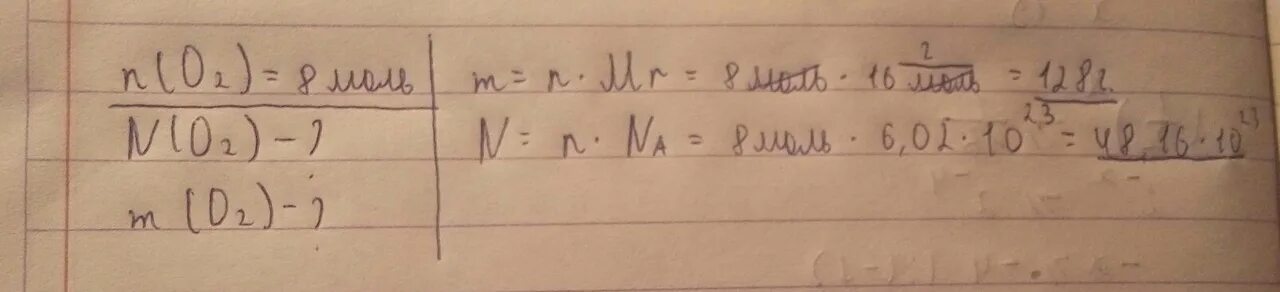 n(O₂) = 8 моль
N(O₂) - ?
m(O₂) - ?
m = n · Mr = 8 моль · 16 г/моль = 128 г.
N = n · N_A = 8 моль · 6,02 · 10²³ = 48,16 · 10²³